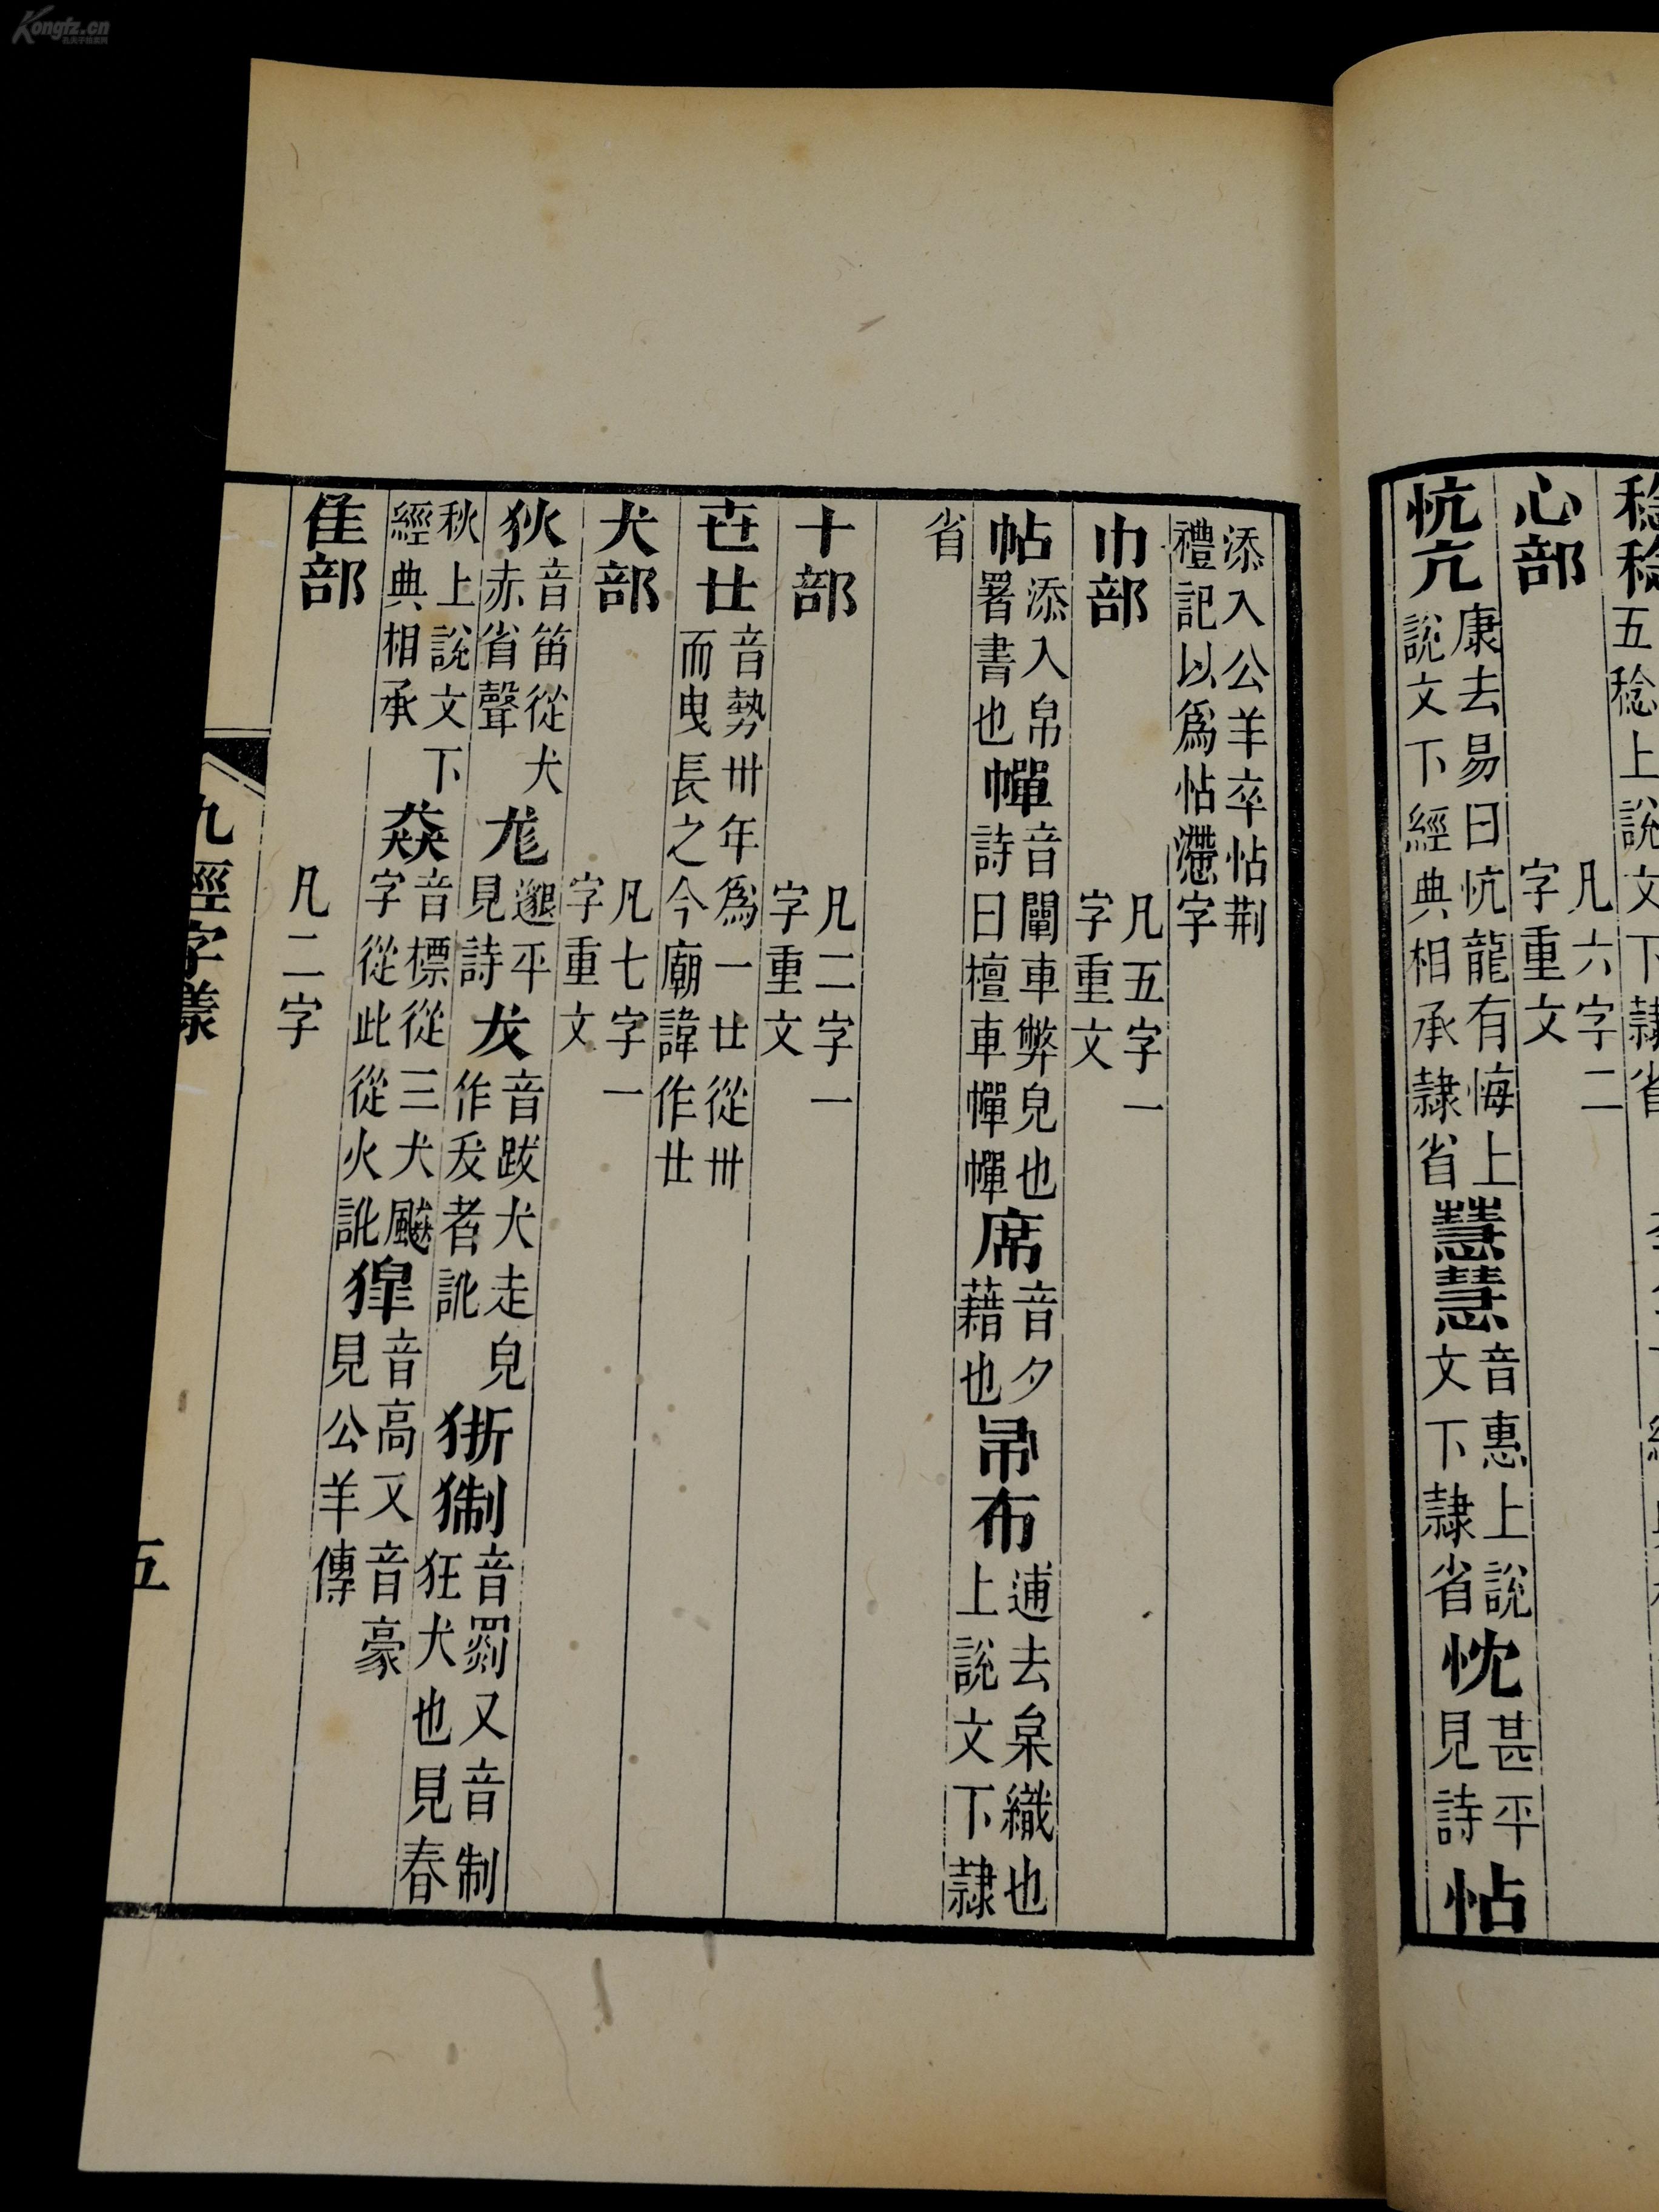 五稔上說文下隸省
心部凡六字二字重文
忼亢康去易曰忼龍有悔上說文下經典相承隸省慧慧音惠上說文下隸省忱甚平見詩怗
添入公羊卒怗荆禮記以爲怗字
巾部凡五字一字重文
帖添入帛署書也幝音闡車弊皃也詩曰檀車幝幝席音夕藉也布逋去枲織也上說文下隸
省
十部凡二字一字重文
世音勢卅年爲一世從卅而曳長之今廟諱作廿
犬部凡七字一字重文
狄音笛從犬赤省聲尨邈平見詩犮音跋犬走皃作犮者訛狾猘音罽又音制狂犬也見春
秋上說文下經典相承猋音標從三犬飇字從此從火訛獋音高又音豪見公羊傳
隹部凡二字
九經字樣
五
Kongfz.cn